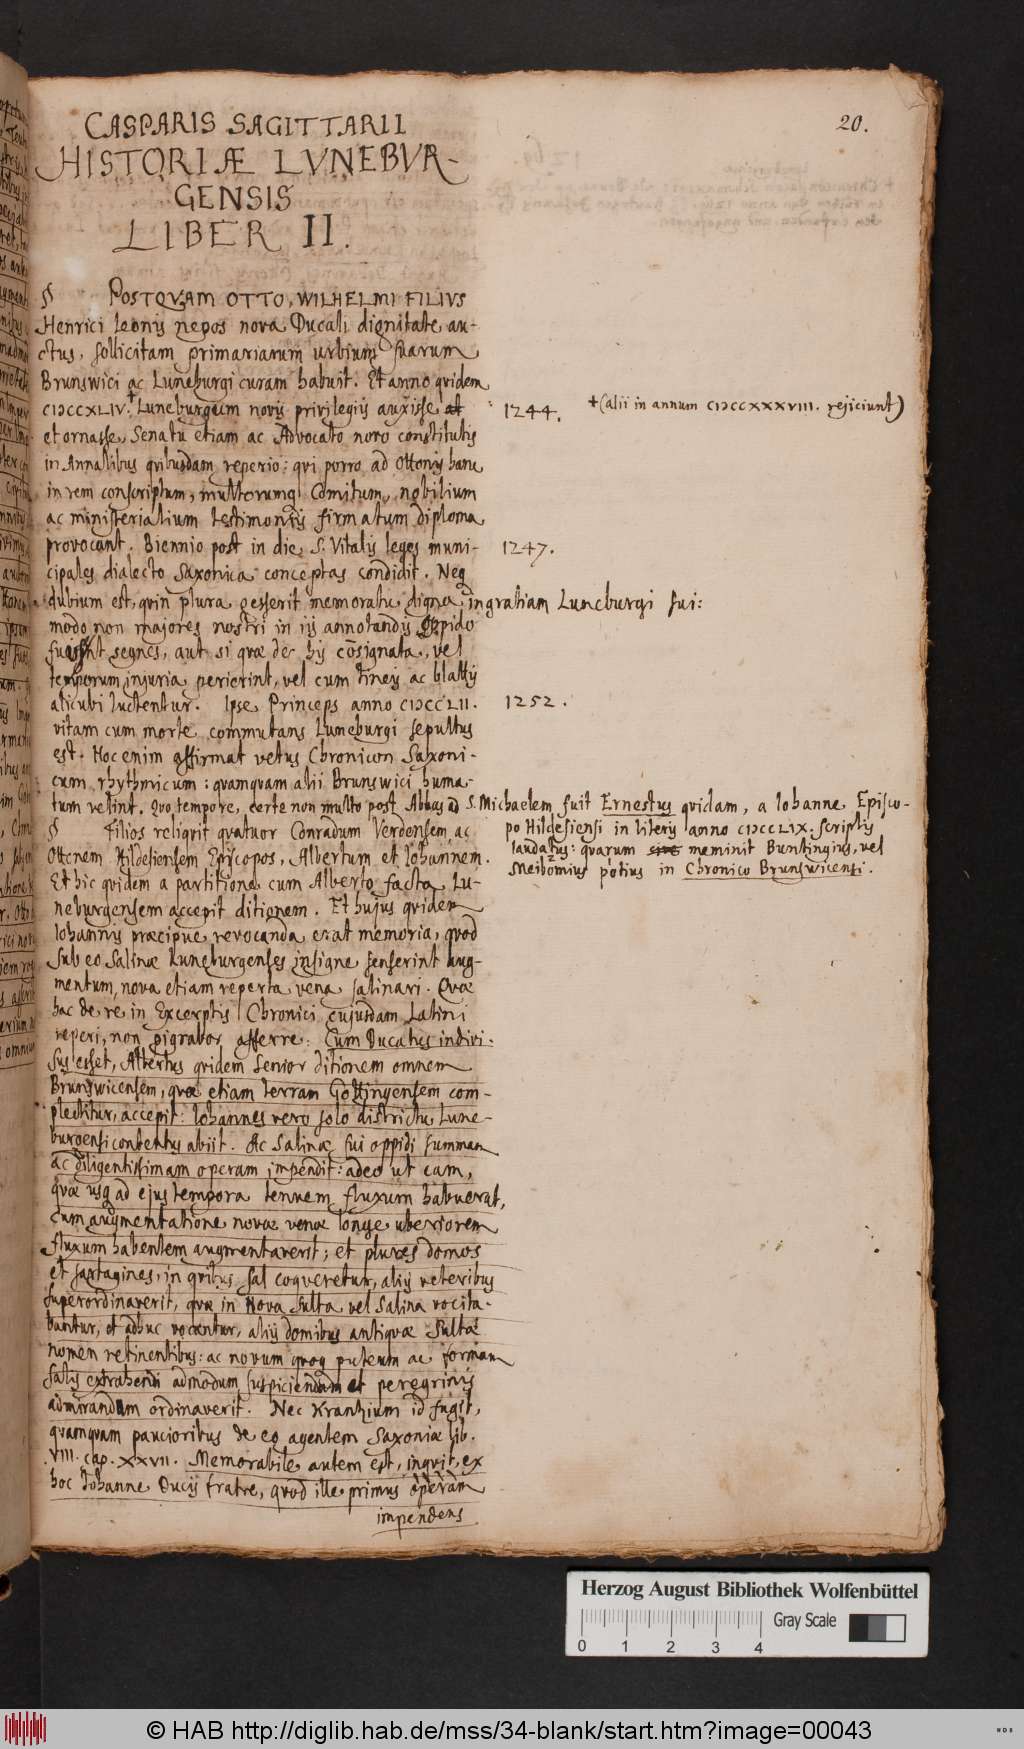 20.
CASPARIS SAGITTARII
HISTORIÆ LVNEBVR-
GENSIS
LIBER II.
§ POSTQVAM OTTO, WILHELMI FILIVS
Henrici Leonis nepos nova Ducali dignitate au-
ctus, sollicitam primariarum urbium suarum
Brunswici ac Luneburgi curam habuit. Et anno qvidem
CIƆCCXLIV.+ Luneburgum novis privilegiis auxisse
1244.
+(alii in annum CIƆCCXXXVIII. rejiciunt)
et ornasse, Senatu etiam ac Advocato novo constitutis
in Annalibus qvibusdam reperio: qvi porro ad Ottonis hanc
in rem conscriptum, multorumq Comitum, nobilium
ac ministerialium testimoniis firmatum diploma
provocant. Biennio post in die S. Vitalis leges muni-
1247.
cipales dialecto Saxonica conceptas condidit. Neq
dubium est, qvin plura gesserit memoratu digna in gratiam Luneburgi sui:
modo non majores nostri in iis annotandis
segnes, aut si qvæ de his cõsignata, vel
temporum injuria perierint, vel cum tineis ac blattis
alicubi luctentur. Ipse Princeps anno CIƆCCLII.
1252.
vitam cum morte commutans Luneburgi sepultus
est. Hoc enim affirmat vetus Chronicon Saxoni-
cum rhythmicum: qvamqvam alii Brunswici huma-
tum velint. Qvo tempore, certe non multo post Abbas ad S. Michaelem fuit Ernestus qvidam, a Iohanne Episco-
po Hildesiensi in literis anno CIƆCCLIX. scriptis
laudatus: qvarum meminit Buntingius, vel
Meibomius potius in Chronico Brunswicensi.
§ Filios reliqvit qvatuor Conradum Verdensem, ac
Ottonem Hildesiensem Episcopos, Albertum et Iohannem.
Et hic qvidem a partitione cum Alberto facta Lu-
neburgensem accepit ditionem. Et hujus qvidem
Iohannis præcipue revocanda erat memoria, qvod
sub eo Salinæ Luneburgenses insigne senserint aug-
mentum, nova etiam reperta vena salinari. Qvæ
hac de re in Excerptis Chronici cujusdam Latini
reperi, non pigrabor afferre: Cum Ducatus indivi-
sus esset, Albertus qvidem senior ditionem omnem
Brunswicensem, qvæ etiam terram Göttingensem com-
plectitur, accepit: Iohannes vero solo districtu Lune-
burgensi contentus abiit. Ac Salinæ sui oppidi summam
ac diligentissimam operam impendit: adeo ut eam,
qvæ usq ad ejus tempora tenuem fluxum habuerat,
cum augmentatione novæ venæ longe uberiorem
fluxum habentem augmentaverit; et plures domos
et sartagines, in qvibus sal coqveretur, aliis veteribus
superordinaverit, qvæ in Nova Sulta vel Salina vocita-
bantur, et adhuc vocantur, aliis domibus antiqvæ Sultæ
nomen retinentibus: ac novum qvoq puteum ac formam
salis extrahendi admodum suspiciendam et peregrinis
admirandam ordinaverit. Nec Krantzium id fugit,
qvamqvam paucioribus de eo agentem Saxoniæ lib.
VIII. cap. XXVII. Memorabile autem est, inqvit, ex
hoc Iohanne Ducis fratre, qvod ille primus operam
impendens
Herzog August Bibliothek Wolfenbüttel
Gray Scale
0 1 2 3 4
© HAB http://diglib.hab.de/mss/34-blank/start.htm?image=00043